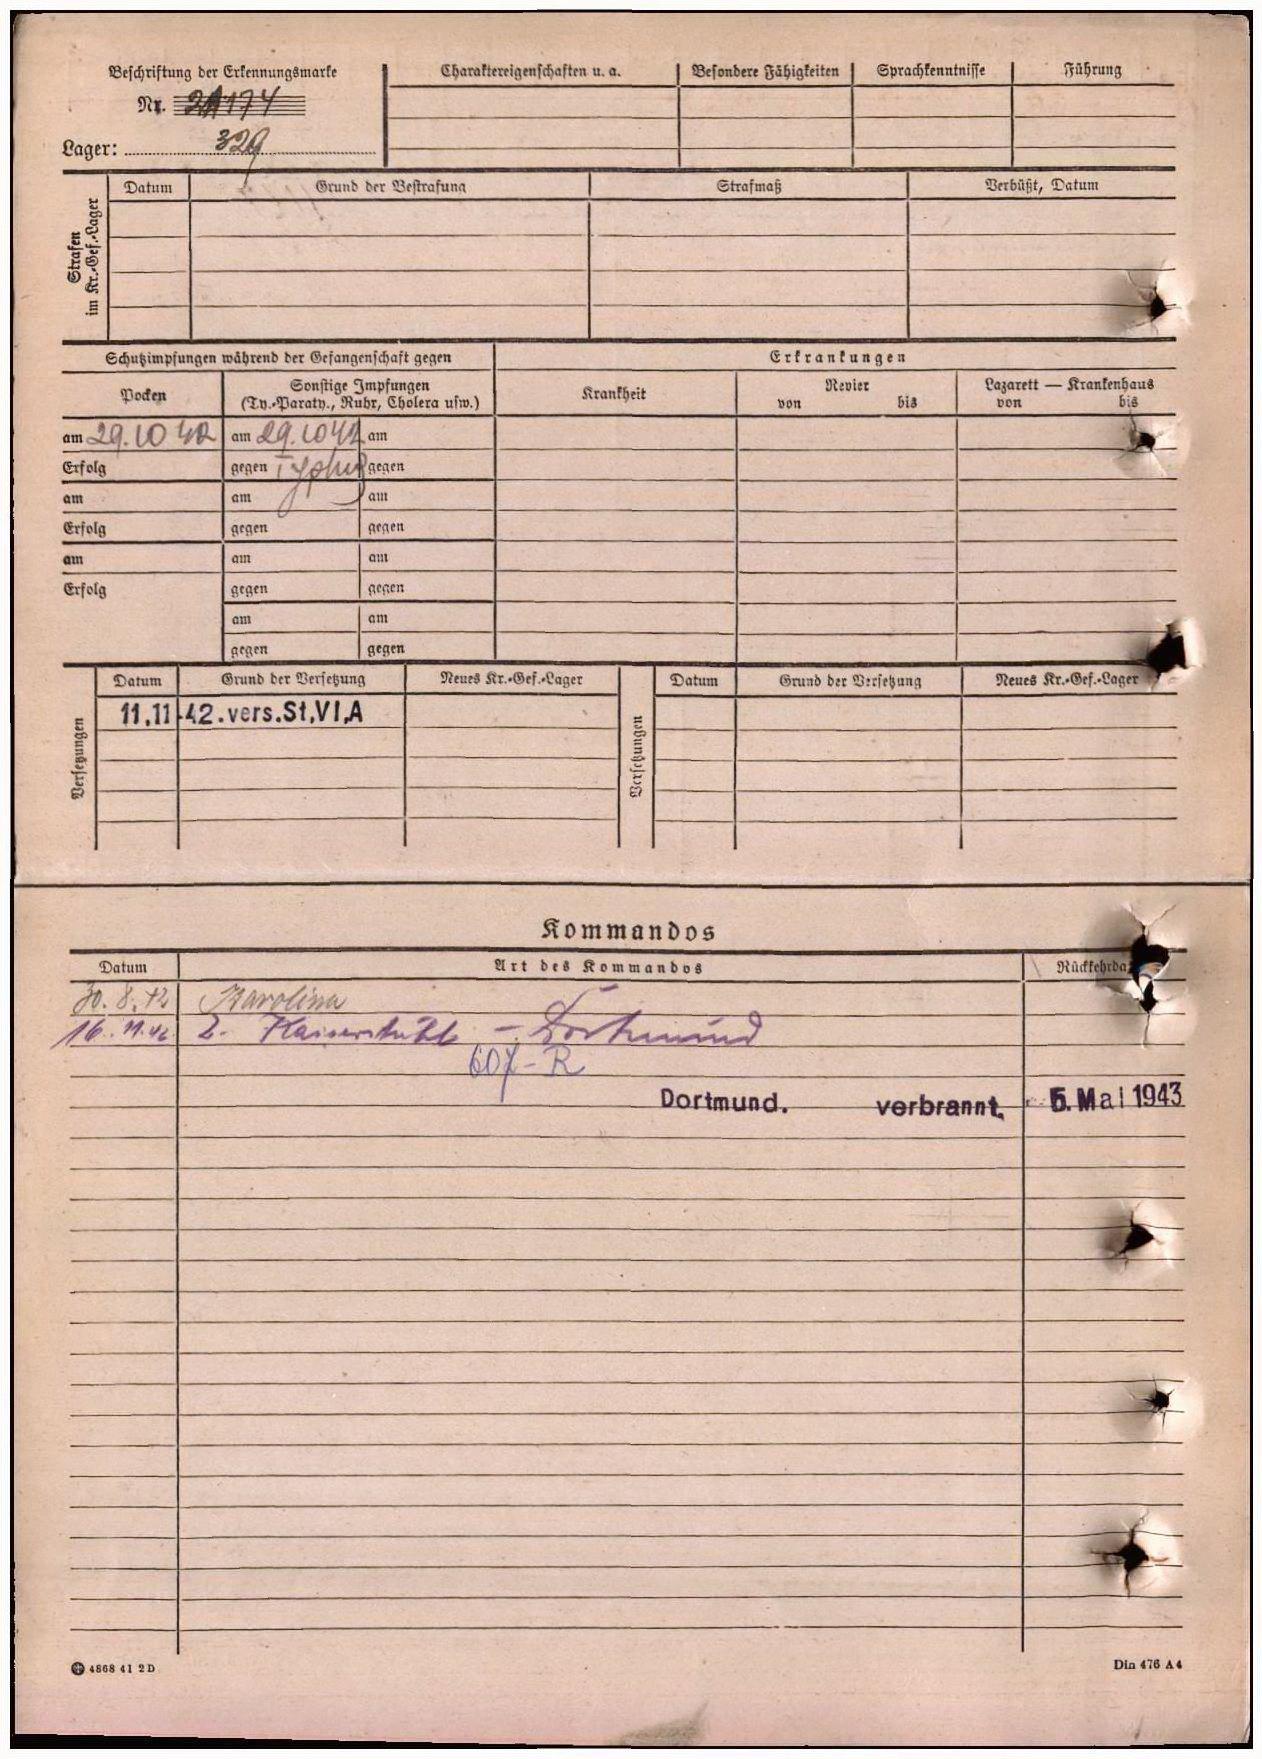 Beschriftung der Erkennungsmarke
Nr. 21174
Lager: 329
Charaktereigenschaften u. a.
Besondere Fähigkeiten
Sprachkenntnisse
Führung
Strafen
im Kr.-Gef.-Lager
Datum
Grund der Bestrafung
Strafmaß
Verbüßt, Datum
Schutzimpfungen während der Gefangenschaft gegen
Erkrankungen
Pocken
Sonstige Impfungen
(Ty.-Paraty., Ruhr, Cholera usw.)
Krankheit
Revier
von bis
Lazarett — Krankenhaus
von bis
am 29.10 42 am 29.10 42 am
Erfolg gegen Typhus gegen
am am am
Erfolg gegen gegen
am am am
Erfolg gegen gegen
am am
gegen gegen
Versetzungen
Datum Grund der Versetzung Neues Kr.-Gef.-Lager
11.11.42. vers.St,VI,A
Versetzungen
Datum Grund der Versetzung Neues Kr.-Gef.-Lager
Kommandos
Datum Art des Kommandos Rückkehrda
30. 8. 42 Karolina
16. 11. 42 Z. Kaiserstuhl - Dortmund
607 - R
Dortmund. verbrannt. 5. Mai 1943
4868 41 2 D
Din 476 A 4